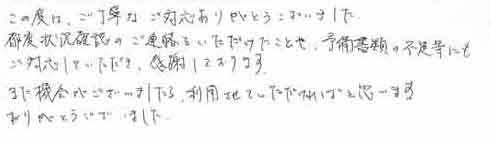 この度は、ご丁寧なご対応ありがとうございました。
都度状況確認のご連絡をいただけたことや、予備書類の不足等にも
ご対応していただき、感謝しております。
また機会がございましたら、利用させていただければと思います
ありがとうございました。